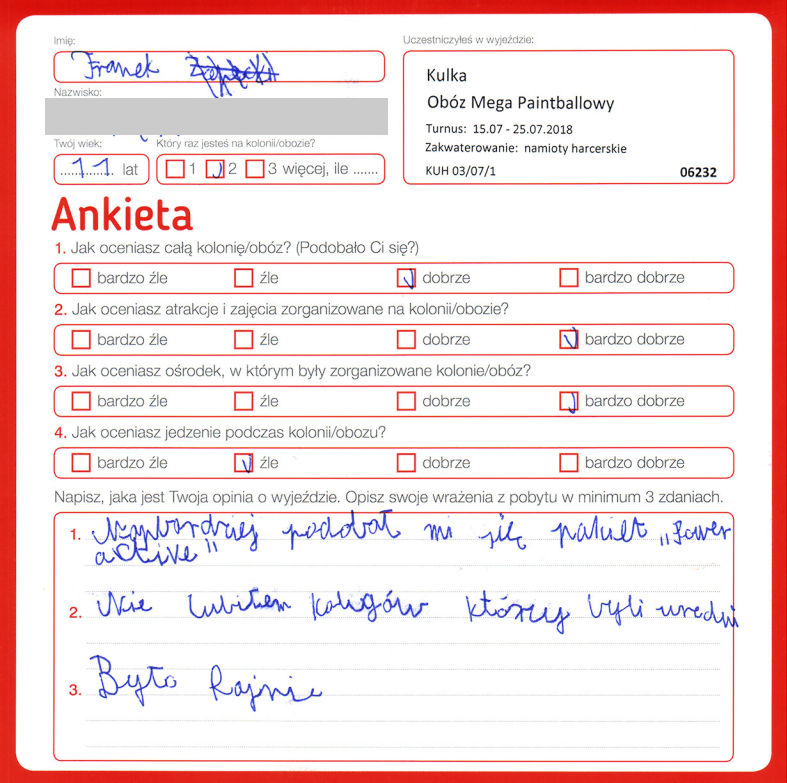 Imię:
Franek
Uczestniczyłeś w wyjeździe:
Kulka
Obóz Mega Paintballowy
Turnus: 15.07 - 25.07.2018
Zakwaterowanie: namioty harcerskie
KUH 03/07/1 06232
Nazwisko:
Twój wiek: Który raz jesteś na kolonii/obozie?
11 lat 1 2 3 więcej, ile .......
Ankieta
1. Jak oceniasz całą kolonię/obóz? (Podobało Ci się?)
bardzo źle źle dobrze bardzo dobrze
2. Jak oceniasz atrakcje i zajęcia zorganizowane na kolonii/obozie?
bardzo źle źle dobrze bardzo dobrze
3. Jak oceniasz ośrodek, w którym były zorganizowane kolonie/obóz?
bardzo źle źle dobrze bardzo dobrze
4. Jak oceniasz jedzenie podczas kolonii/obozu?
bardzo źle źle dobrze bardzo dobrze
Napisz, jaka jest Twoja opinia o wyjeździe. Opisz swoje wrażenia z pobytu w minimum 3 zdaniach.
1. Najbardziej podobał mi się pakiet „Power
active"
2. Nie lubiłem kolegów którzy byli wredni
3. Było fajnie